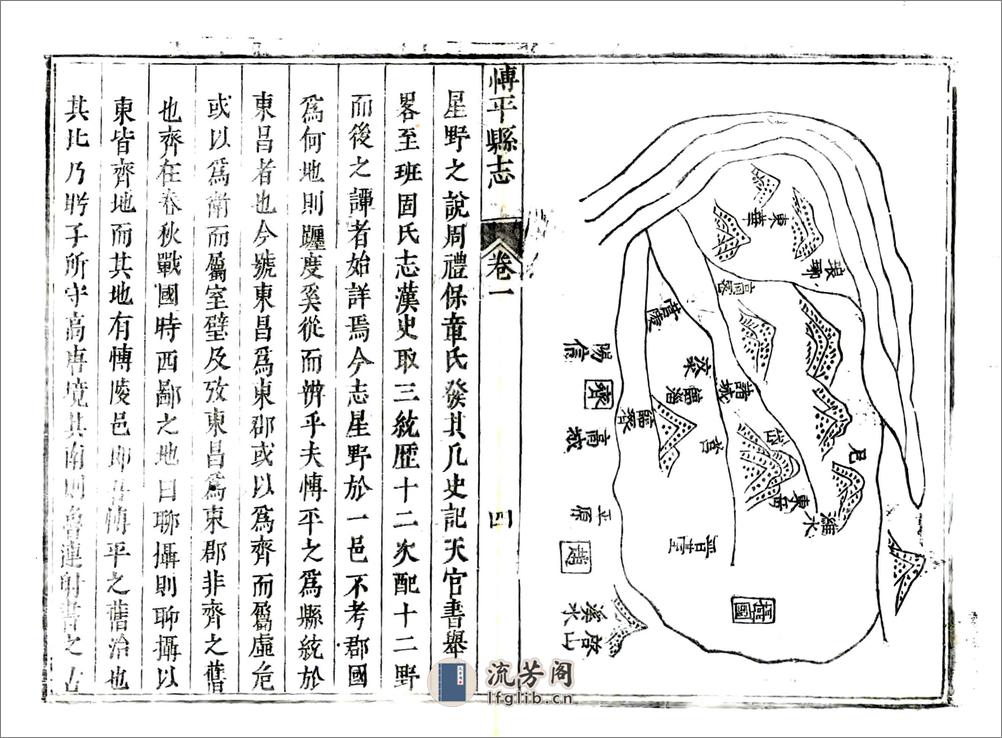 東華
琅聊
高密
嶗
諸城
莒
臨淄
蔡
營陵
兗
東岳
濰水
陽信
齊
高城
平原
趙
營山
荷國
博平縣志
卷一
四
星野之說周禮保章氏發其凡史記天官書舉
畧至班固氏志漢史取三統歷十二次配十二野
而後之譚者始詳焉今志星野於一邑不考郡國
爲何地則躔度奚從而辨乎夫博平之爲縣統於
東昌者也今號東昌爲東郡或以爲齊而屬虛危
或以爲衛而屬室壁及攷東昌爲東郡非齊之舊
也齊在春秋戰國時西鄙之地曰聊攝則聊攝以
東皆齊地而其地有博陵邑卽吾博平之舊治也
其北乃盻子所守高唐境其南則魯連射書之
流芳阁
lfglib.cn